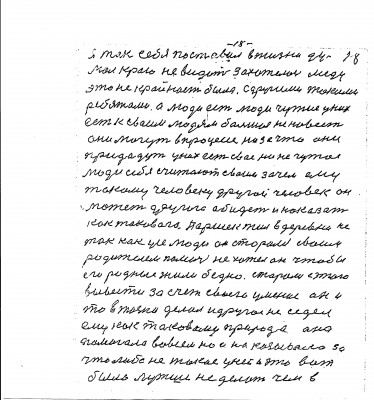 -18- 18
я так себя поставил в жизни ду-
мал краю не видит захотелось меду
это не крайность была. с другими такими
ребятами. а люди ест люди чужие у них
ест к своим людям больше ненавист
они могут в процесе на за что они
придадут у них ест свае ни не чужое
люди себя считают своим зачем ему
такому человеку другой человек он
может другого абидет и показат
как таковаго. Паришек жил в деревни не
так как все люди он старался своим
родителем помоч не хотел он чтобы
его родные жили бедно. старался этого
вывести за счет своего умение он и
то в толка делал и другое не сидел
ему как таковому природа она
помагала во всем но и наказывала за
что либо не такое у него это вот
было лутше не делат чем в